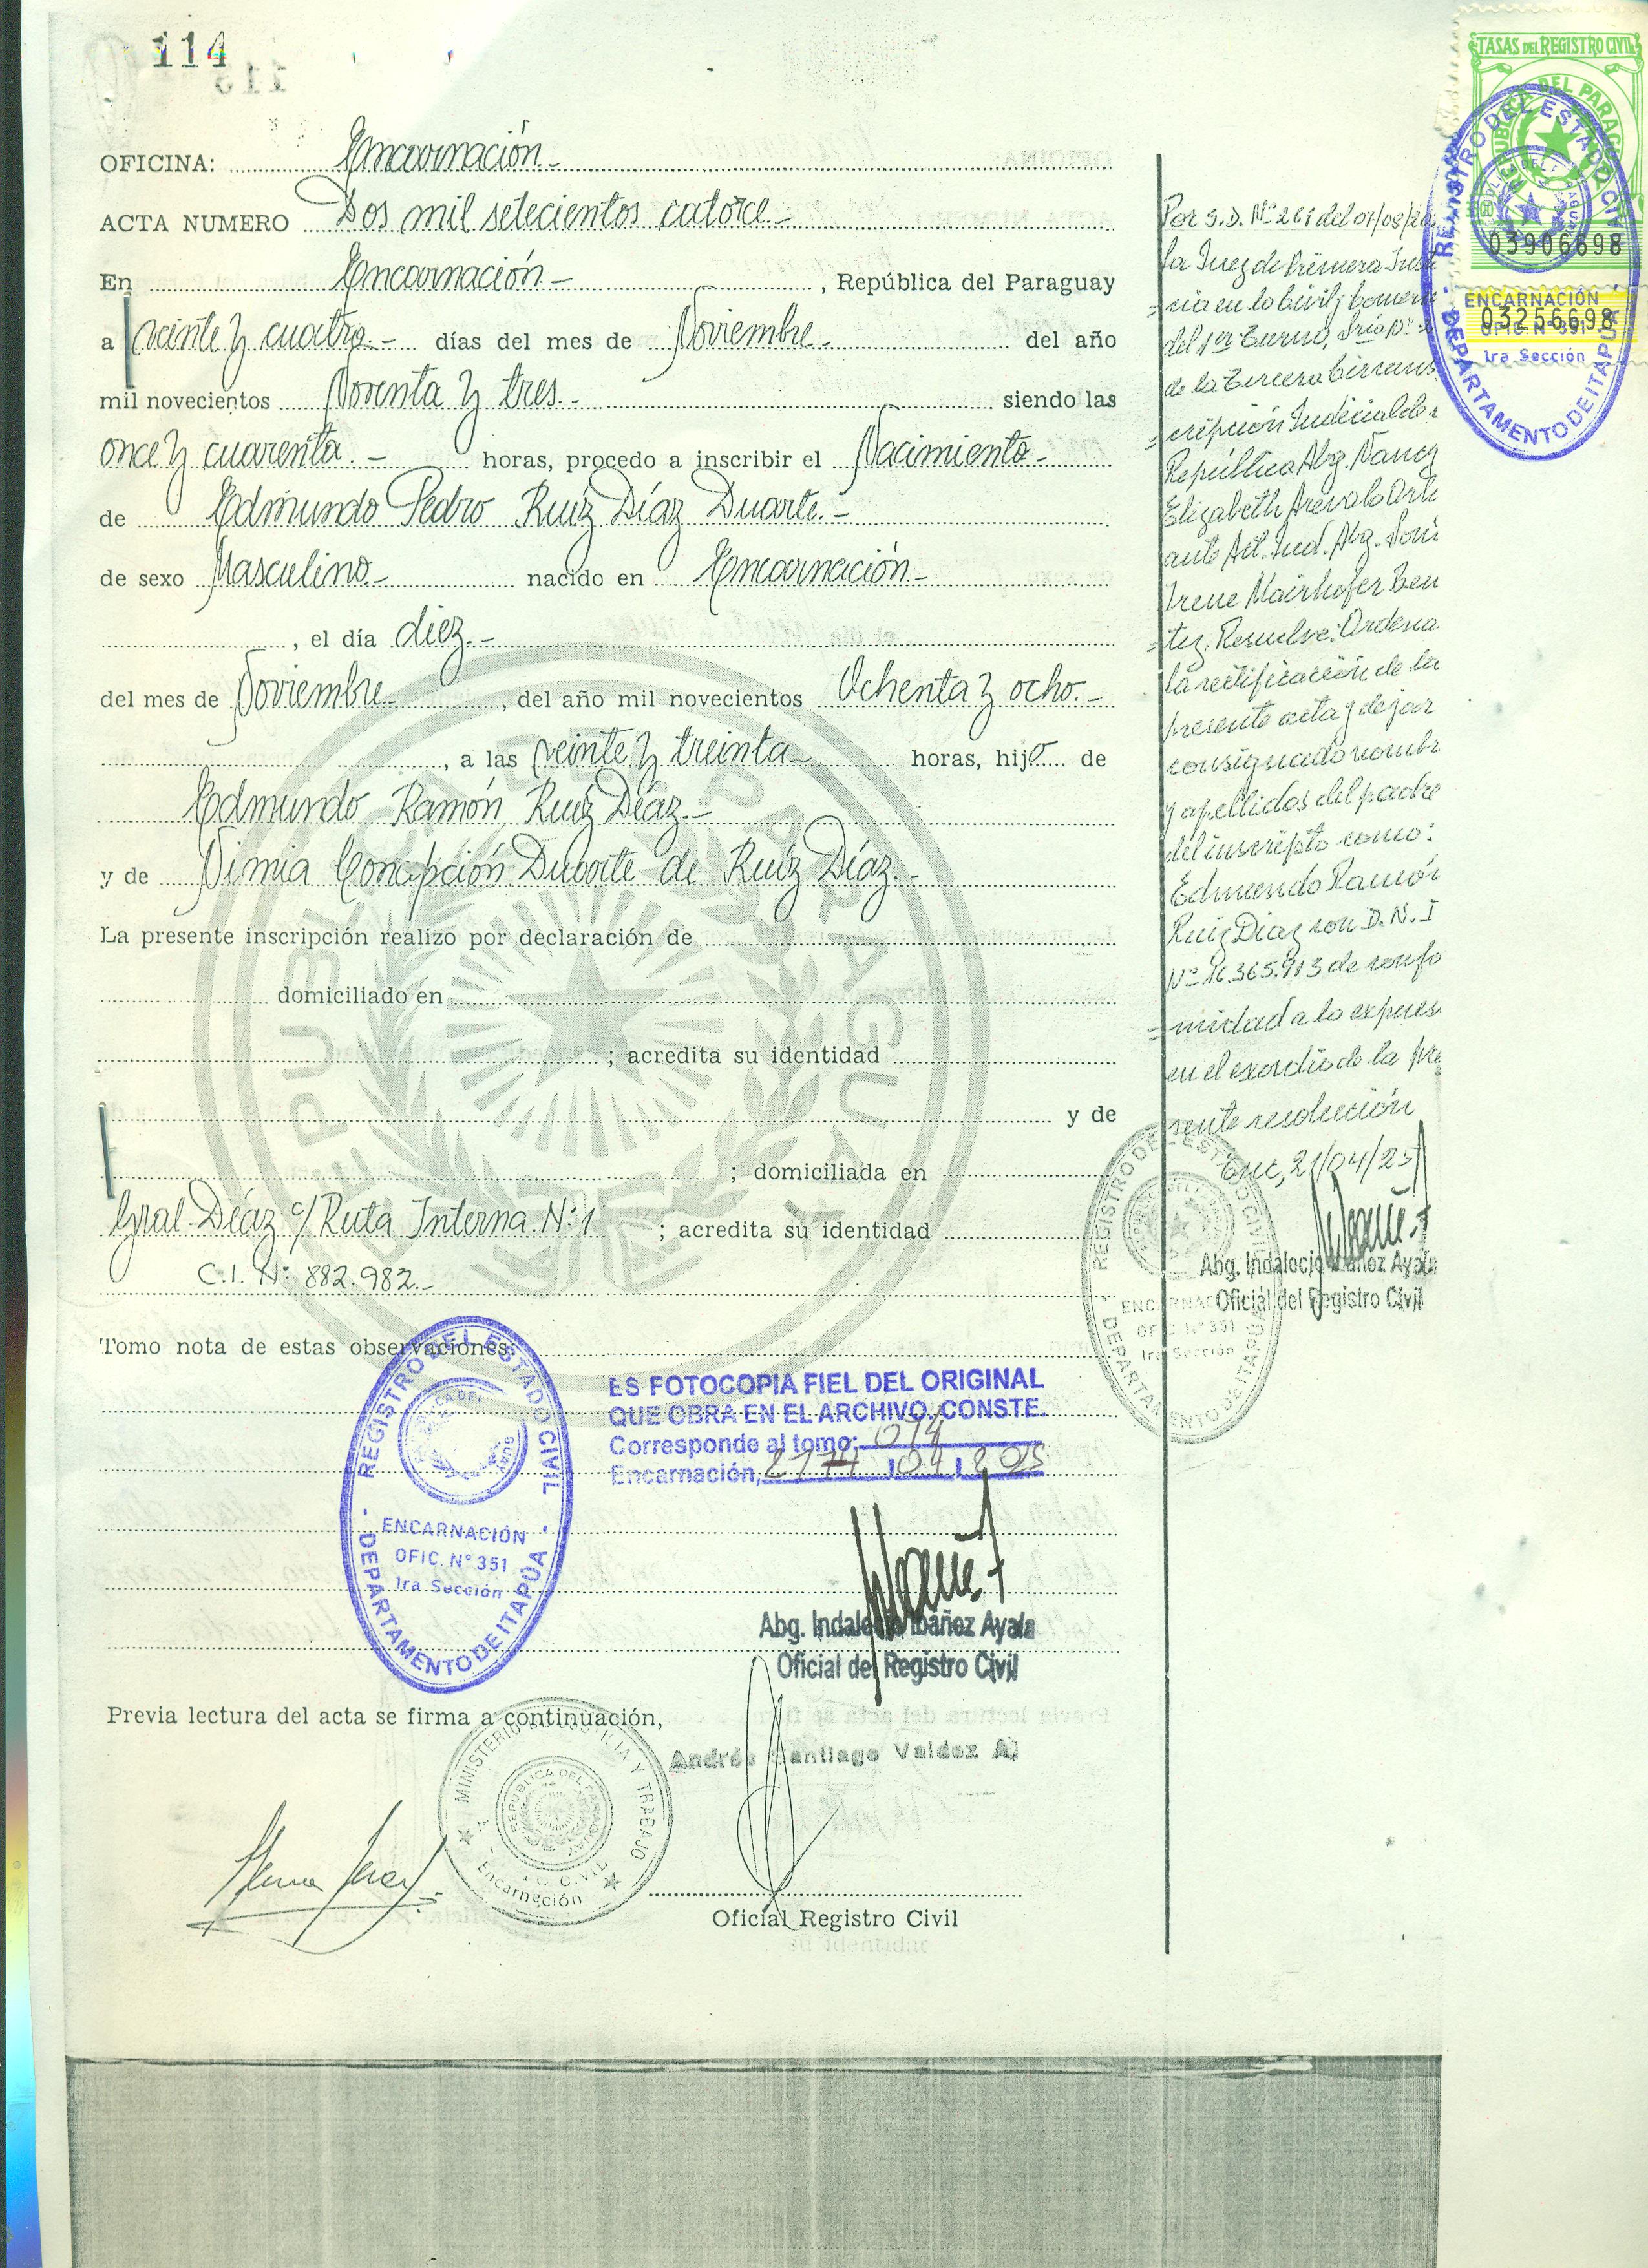 114
OFICINA: Encarnación.-
ACTA NUMERO Dos mil setecientos catorce.-
En Encarnación.- , República del Paraguay
a veinte y cuatro.- días del mes de Noviembre.- del año
mil novecientos Noventa y tres.- siendo las
once y cuarenta.- horas, procedo a inscribir el Nacimiento.-
de Edmundo Pedro Ruíz Díaz Duarte.-
de sexo Masculino.- nacido en Encarnación.-
, el día diez.-
del mes de Noviembre.- , del año mil novecientos Ochenta y ocho.-
, a las veinte y treinta.- horas, hijo de
Edmundo Ramón Ruíz Díaz.-
y de Nimia Concepción Duarte de Ruíz Díaz.-
La presente inscripción realizo por declaración de
domiciliado en
; acredita su identidad
y de
; domiciliada en
Gral. Díaz c/ Ruta Interna Nº 1 ; acredita su identidad
C.I. Nº 882.982.-
Tomo nota de estas observaciones:
ES FOTOCOPIA FIEL DEL ORIGINAL
QUE OBRA EN EL ARCHIVO. CONSTE.
Corresponde al tomo: 014
Encarnación, 21 04 2025
REGISTRO DEL ESTADO CIVIL
ENCARNACIÓN
OFIC. Nº 351
1ra Sección
DEPARTAMENTO DE ITAPÚA
Abg. Indalecio Ibáñez Ayala
Oficial del Registro Civil
Previa lectura del acta se firma a continuación,
Andrés Santiago Valdez A.
MINISTERIO DE JUSTICIA Y TRABAJO
REPUBLICA DEL PARAGUAY
Encarnación
Oficial Registro Civil
Por S.D. Nº 261 del 01/08/20
la Juez de Primera Inst
=cia en lo Civil y Comerc
del 1er Turno,
de la Tercera Circuns
=cripción Judicial de
República Abg. Nancy
Elizabeth Arévalo
ante Act. Jud. Abg.
Irene Mairhofer Ben
=tez. Resuelve: Ordena
la rectificación de la
presente acta y dejar
consignado nombr
y apellidos del padre
del inscripto como:
Edmundo Ramón
Ruiz Diaz con D.N.I
Nº 16.365.913 de confo
=midad a lo expues
en el exordio de la pre
sente resolución
Enc, 21/04/25
Abg. Indalecio Ibáñez Ayala
Oficial del Registro Civil
REGISTRO DEL ESTADO CIVIL
ENCARNACIÓN
OFIC. Nº 351
1ra Sección
DEPARTAMENTO DE ITAPÚA
TASAS DEL REGISTRO CIVIL
REPUBLICA DEL PARAGUAY
03906698
03256698
REGISTRO DEL ESTADO CIVIL
ENCARNACIÓN
OFIC. Nº 351
1ra Sección
DEPARTAMENTO DE ITAPÚA